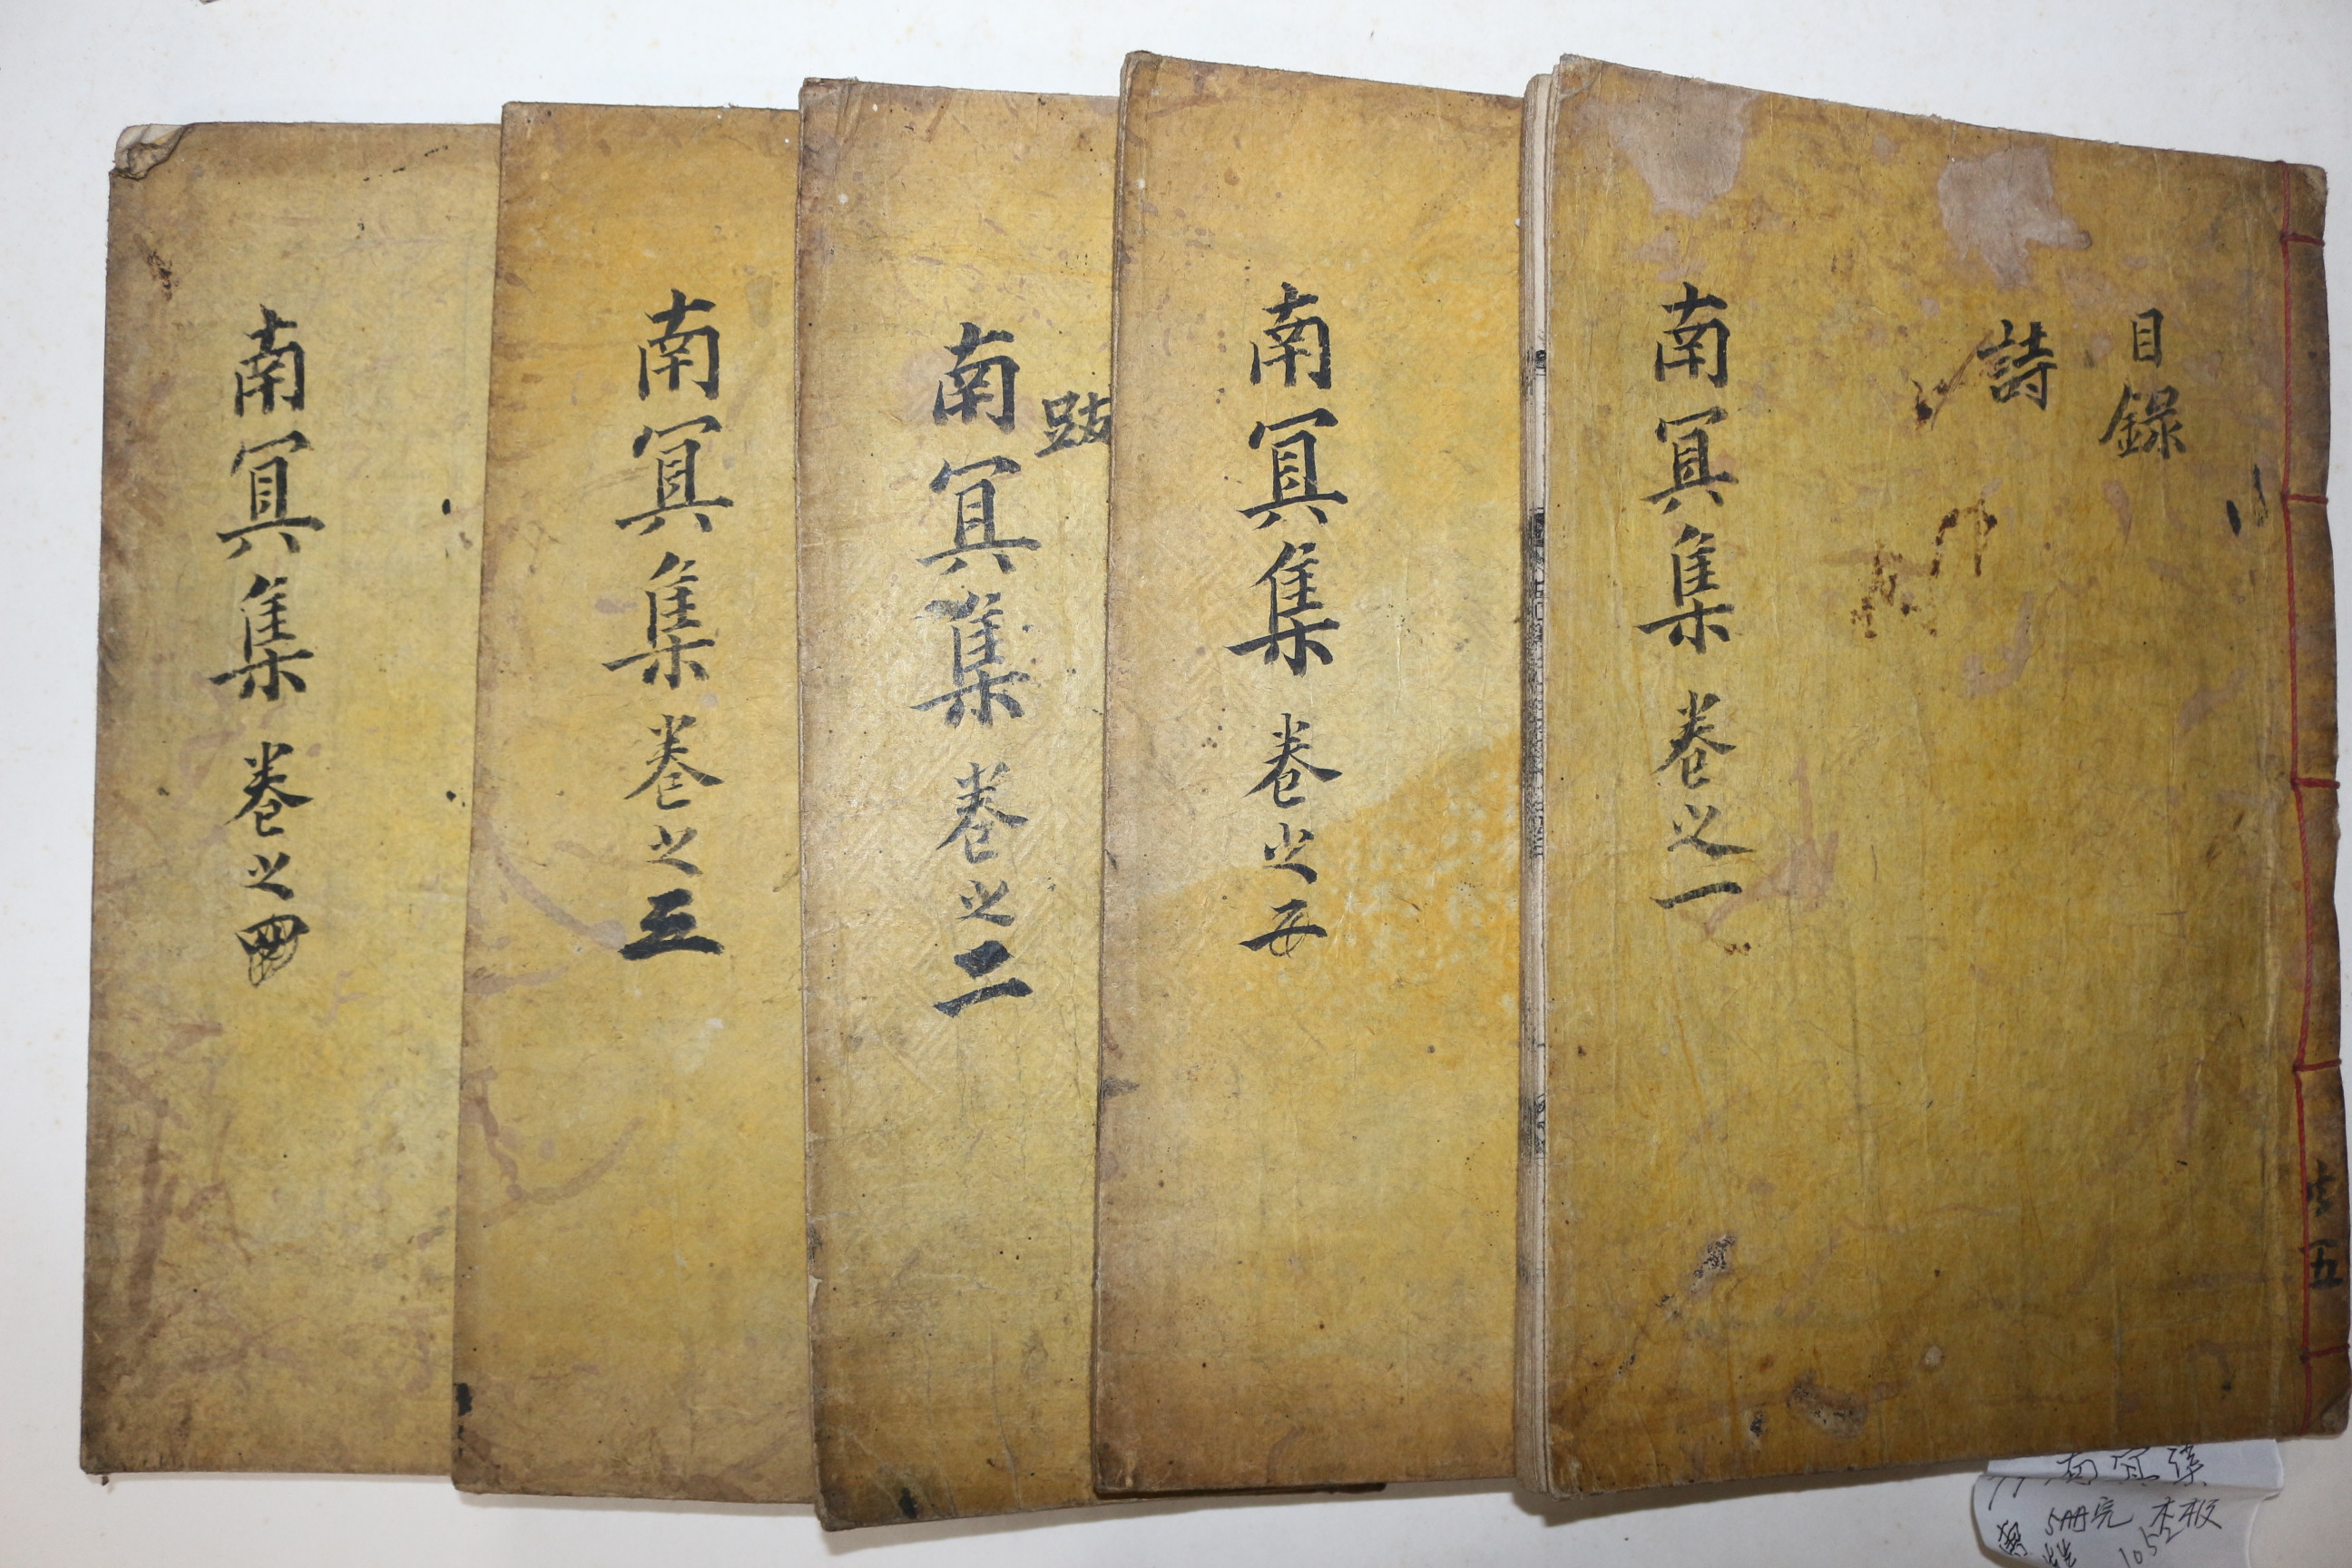 目錄
詩
南冥集 卷之一
五
南冥集 卷之五
跋
南冥集 卷之二
南冥集 卷之三
南冥集 卷之四
南冥集
5冊完 木板
1052